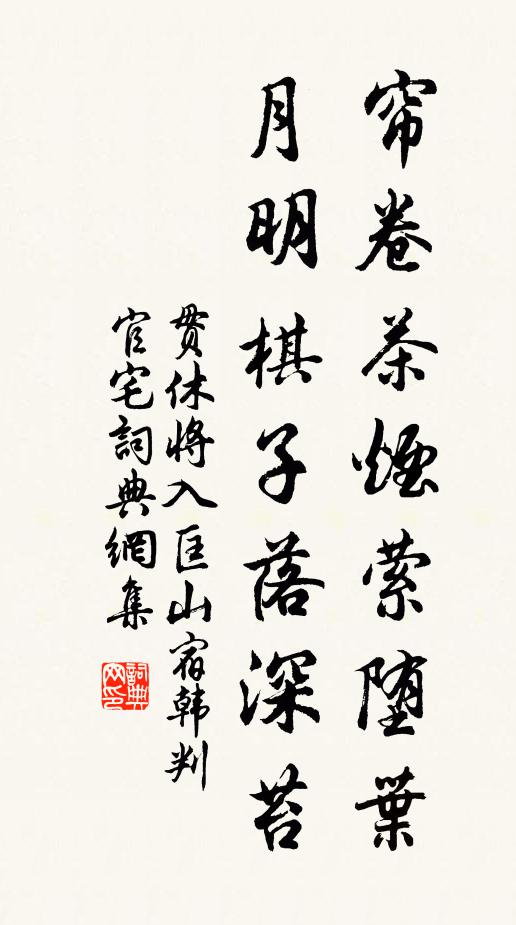 帘卷茶煙縈堕葉
月明棋子落深苔
贯休将入匡山宿韩判
官宅詞典網集
詞典
网印